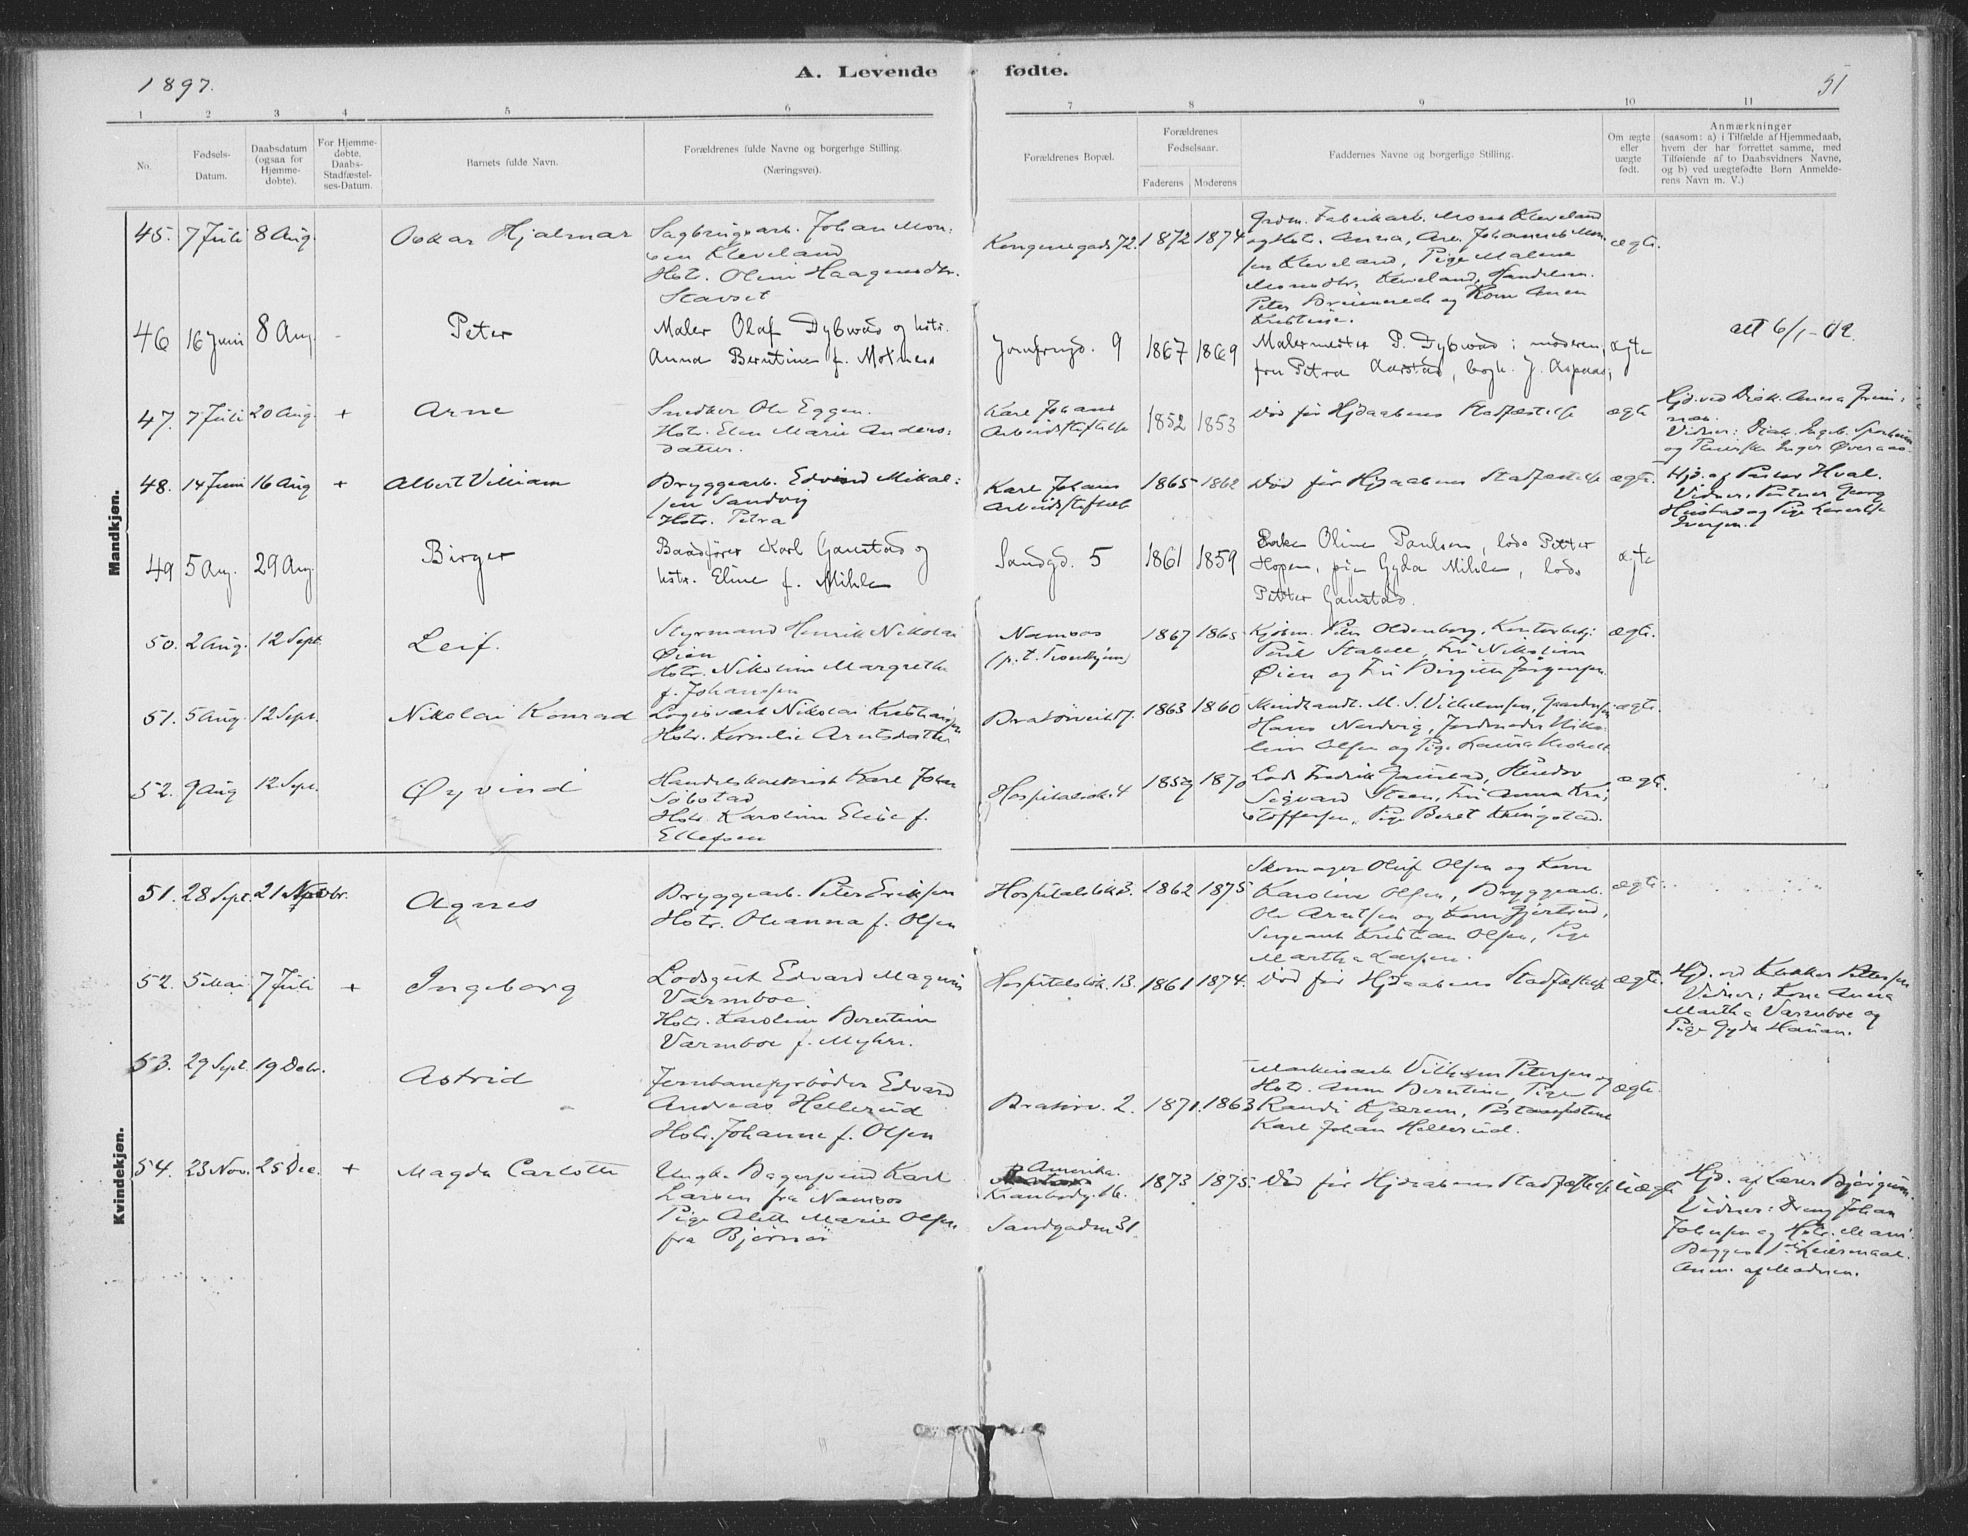 1897.
A. Levende fødte.
51
1 2 3 4 5 6 7 8 9 10 11
No.
Fødsels-
Datum.
Daabsdatum
(ogsaa for
Hjemme-
døbte).
For Hjemme-
døbte.
Daabs-
Stadfæstel-
ses-Datum.
Barnets fulde Navn.
Forældrenes fulde Navne og borgerlige Stilling.
(Næringsvei).
Forældrenes Bopæl.
Forældrenes
Fødselsaar.
Faderens Moderens
Faddernes Navne og borgerlige Stilling.
Om ægte
eller
uægte
født.
Anmærkninger
(saasom: a) i Tilfælde af Hjemmedaab,
hvem der har forrettet samme, med
Tilføiende af to Daabsvidners Navne,
og b) ved uægtefødte Børn Anmelde-
rens Navn m. V.)
Mandkjøn.
45. 7 Juli 8 Aug. Oskar Hjalmar
Sagbrugsarb. Johan Mon-
sen Kleveland
Hstr. Oline Haagensdtr.
Stavset
Kongensgade 72. 1872 1874
Grdm. Fabrikarb. Mons Kleveland
og Hstr. Anna, Arb. Johannes Mon-
sen Kleveland, Pige Malene
Monsdtr. Kleveland, Handelsm.
Peter og Kone Anen
Kristine.
ægte.
46 16 Juni 8 Aug. - Peter
Maler Olaf Dybwad og hstr.
Anna Berntine f. Motness
Jomfrugd. 9 1867 1869
Malermester P. Dybwad; moderen,
fru Petra Aarstad, bogh. J. Aspaas;
ægte
att 6/1-02.
47. 7 Juli 20 Aug. + Arne
Snedker Ole Eggen.
Hstr. Elen Marie Anders-
datter.
Karl Johans
Arbeidsstiftelse
1852 1853
Død før Hjdaabens Stadfæstelse
ægte
Hjd. ved Diak. Anna Grøn-
næs.
Vidner: Diak. Ingeb.
og Inger Øveraas.
48. 14 Juni 16 Aug + Albert Villiam
Bryggearb. Edvind Mikal-
sen Sandvig
Hstr. Petra
Karl Johans
Arbeidsstiftelse
1865 1862
Død før Hjdaabens Stadfæstelse
ægte.
Hjd. af Pastor Hval.
Vidner, Georg
og Pige
Iversen.
49 5 Aug. 29 Aug. Birger
Baadfører Karl Ganstad og
hstr. Eline f. Mihle
Sandgd. 5 1861 1859
Enke Oline Paulsen, lods Petter
Hopen, pige Gyda Mihle, lods
Petter Ganstad.
ægte
50. 2 Aug. 12 Sept. Leif.
Styrmand Henrik Nikolai
Øien
Hstr. Nikoline Margrethe
f. Johansen
Namsos
(p.t. Trondhjem)
1867 1865
Kjøbm. Peter Oldenborg, Kontorbetj.
Stabell, Fru Nikoline
Øien og Fru Birgitte Jørgensen
ægte.
51. 5 Aug. 12 Sept. Nikolai Konrad
Logisvært Nikolai Kristiansen
Hstr. Kornelie Arntsdatter
Bratørveit 7. 1863 1860
Mindhandl. M. S. Vilhelmsen, Gaardbruger
Hans Nordvig, Jordmoder Niko-
line Olsen og Pige Laura
ægte.
52. 9 Aug 12 Sept. Øyvind
Handelskontorist Karl Johan
Søbstad
Hstr. Karoline Elise f.
Ellefsen
Hospitalslk. 4 1859 1870
Lods Fredrik Ganstad,
Sigvard Steen, Fru Anna Kri-
stoffersen, Pige Beret Kringstad.
ægte.
Kvindekjøn.
51. 28 Sept. 21 Novbr. Agnes
Bryggearb. Peter Eriksen
Hstr. Oleanna f. Olsen
Hospitalslk. 3. 1862 1875
Skomager Oluf Olsen og Kone
Karoline Olsen, Bryggearb.
Ole Arntsen og Kone Gjertrud,
Sergeant Kristian Olsen, Pige
Martha Larsen.
ægte.
52. 5 Mai 7 Juli + Ingeborg
Lodsgut Edvard Magnus
Varmboe
Hstr. Karoline Berntine
Varmboe f. Myhre.
Hospitalslk. 13. 1861 1874.
Død før Hjdaabens Stadfæstelse
ægte.
Hjd. ved Klokker Pettersen
Vidner: Kone Anna
Martha Varmboe og
Pige Gyda Hanan.
53. 29 Sept. 19 Debr. Astrid
Jernbanefyrbøder Edvard
Andreas Hellerud
Hstr. Johanne f. Olsen
Bratørv. 2. 1871. 1863
Maskinarb. Vilhelm Petersen og
Hstr. Anne Berntine, Pige
Randi Kjærem, Postassistent
Karl Johan Hellerud.
ægte.
54. 23 Nov. 25 Dec. + Magda Carlotte
Ungk. Bagersvend Karl
Larsen fra Namsos
Pige Aleth Marie Olsen
fra Bjørnør
Amerika.
Kranbodg. 16.
Sandgaden 31.
1873 1875.
Død før Hjdaabens Stadfæstelse
uægte
Hjd. af Lærer Bjørgum.
Vidner: Dreng Johan
Johnsen og Hstr. Marie
Begges 1ste Leiermaal.
Anm. af Moderen.